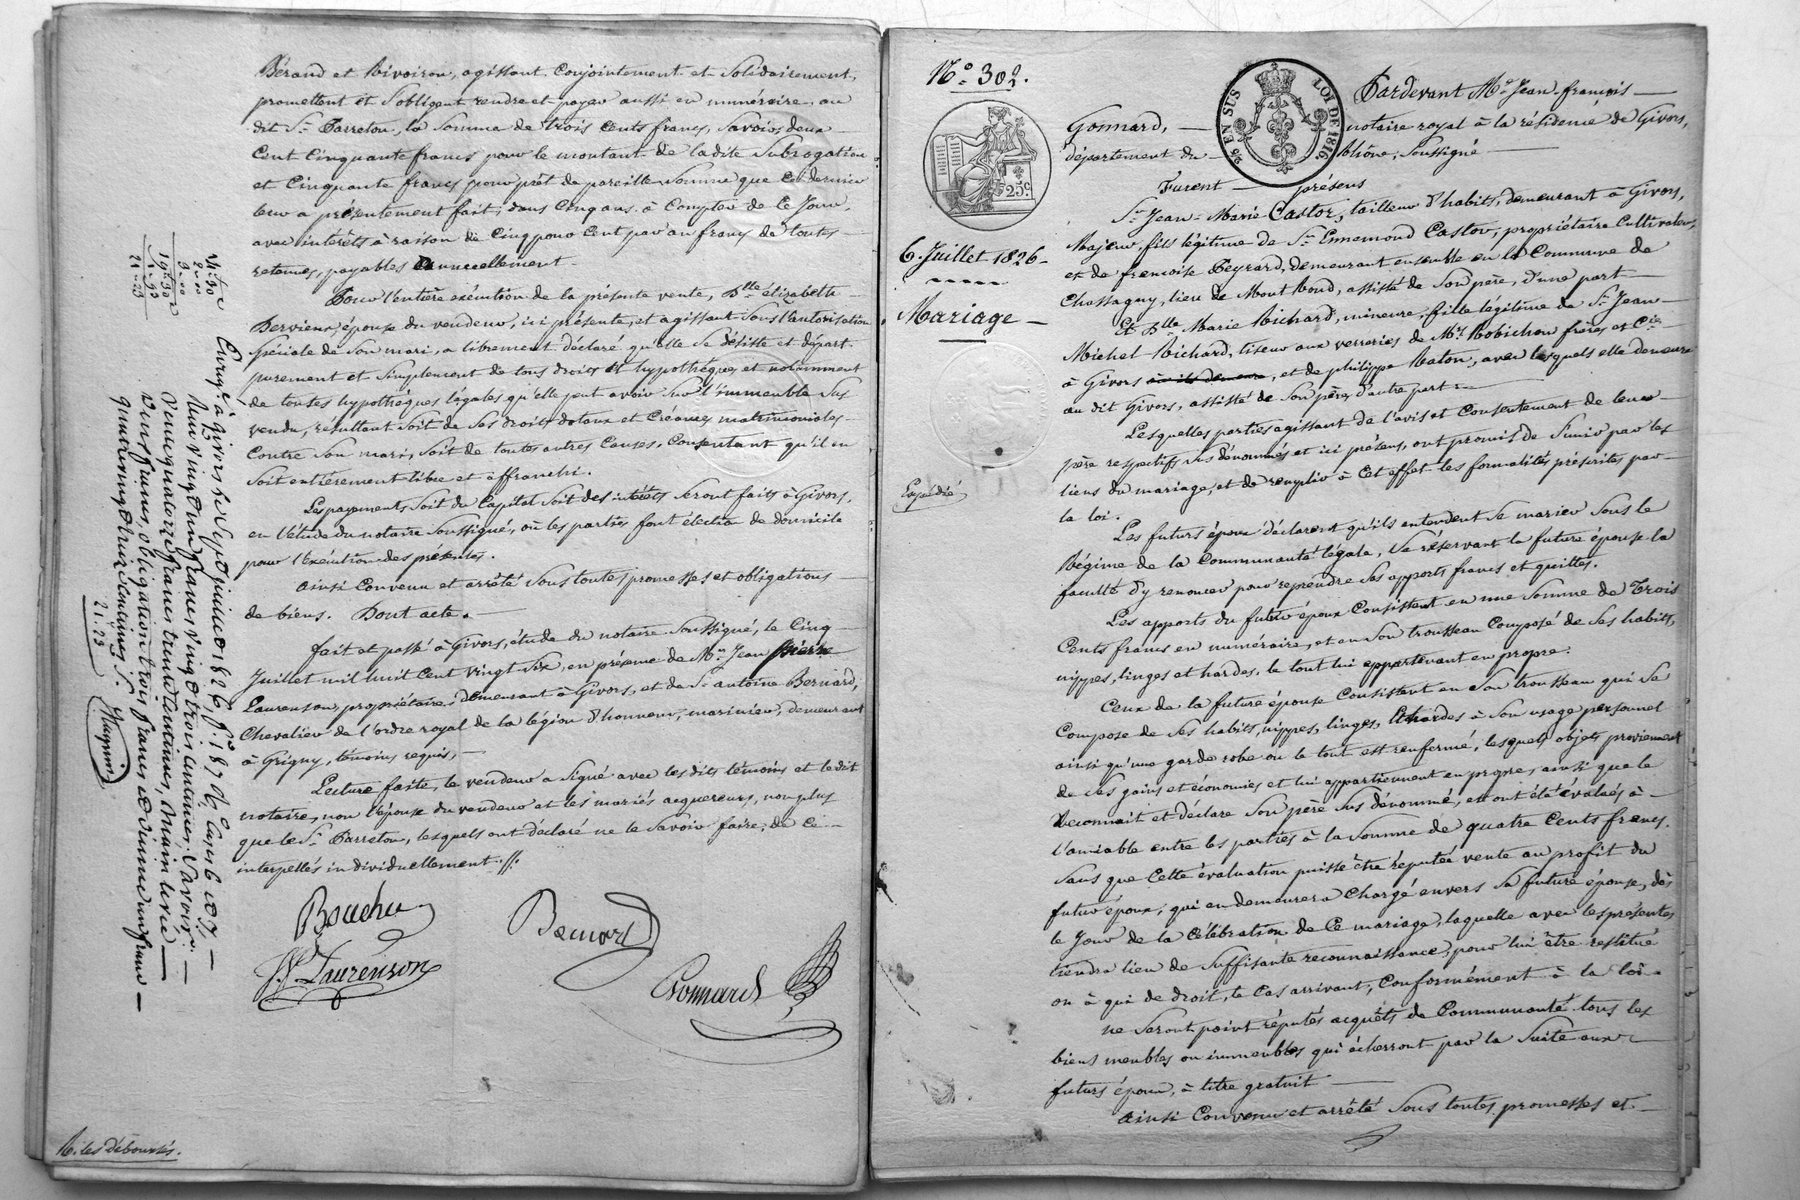 Bérard et Rivoiron, agissant conjointement et solidairement,
promettent et s'obligent rendre et payer aussi en numéraire, au
dit Sr. Barreton, la somme de trois cents francs, savoir: deux
cent cinquante francs pour le montant de ladite subrogation
et cinquante francs pour prêt de pareille somme que ce dernier
leur a présentement fait; dans cinq ans à compter de ce jour,
avec intérêts à raison de cinq pour cent par an francs de toutes
retenues, payables annuellement.
Pour l'entière exécution de la présente vente, Dlle. élizabeth
Dervieux, épouse du vendeur, ici présente, et agissant sous l'autorisation
spéciale de son mari, a librement déclaré qu'elle se désiste et départ
purement et simplement de tous droits et hypothèques, et notamment
de toutes hypothèques légales qu'elle peut avoir sur l'immeuble sus
vendu, résultant soit de ses droits dotaux et créances matrimoniales
contre son mari, soit de toutes autres causes, consentant qu'il en
soit entièrement libre et affranchi.
Les payements soit du capital soit des intérêts seront faits à Givors,
en l'étude du notaire soussigné, où les parties font élection de domicile
pour l'exécution des présentes.
Ainsi convenu et arrêté sous toutes promesses et obligations
de biens. Dont acte.
fait et passé à Givors, étude du notaire soussigné, le cinq
Juillet mil huit cent vingt six, en présence de Mrs. Jean Pierre
Laurenson, propriétaire, demeurant à Givors, et de Sr. antoine Bernard,
Chevalier de l'ordre royal de la légion d'honneur, marinier, demeurant
à Grigny, témoins requis,
Lecture faite, le vendeur a signé avec les dits témoins et le dit
notaire, non l'épouse du vendeur et les mariés acquereurs, non plus
que le Sr. Barreton, lesquels ont déclaré ne le savoir faire, de ce
interpellés individuellement.
Bouchu
Bernard
J. P. Laurenson
Gonnard
Enregé. à Givors le Sept juillet 1826, fo. 187
21.23
R. les débourés.
No. 302.
25c.
25 EN SUS
LOI DE 1816
6. Juillet 1826.
Mariage
Expédié
Pardevant Me. Jean-françois
Gonnard, notaire royal à la résidence de Givors,
département du Rhône, soussigné
Furent présens
Sr. Jean-Marie Castor, tailleur d'habits, demeurant à Givors,
Majeur, fils légitime de Sr. Ennemond Castor, propriétaire cultivateur,
et de françoise Peyrard, demeurant ensemble en la Commune de
Chassagny, lieu de Mont Rond, assisté de son père, d'une part
Et Dlle. Marie Richard, mineure, fille légitime de Sr. Jean
Michel Richard, tiseur aux verreries de Mrs. Robichon frères et Cie.
à Givors où ils demeure, et de philippe Raton, avec lesquels elle demeure
au dit Givors, assisté de son père, d'autre part:
Lesquelles parties agissant de l'avis et consentement de leurs
père respectifs sus dénommés et ici présens, ont promis de s'unir par les
liens du mariage, et de remplir à cet effet les formalités préscrites par
la loi.
Les futurs époux déclarent qu'ils entendent se marier sous le
Régime de la Communauté légale, se réservant la future épouse la
faculté d'y renoncer pour reprendre ses apports francs et quittes.
Les apports du futur époux consistent en une somme de Trois
Cents francs en numéraire, et en son trousseau composé de ses habits,
nippes, linges et hardes, le tout lui appartenant en propre.
Ceux de la future épouse consistent en son trousseau qui se
compose de ses habits, nippes, linges, & hardes à son usage personnel
ainsi qu'une garde robe où le tout est renfermé, lesquels objets proviennent
de ses gains et économies et lui appartiennent en propre, ainsi que le
reconnait et déclare son père sus dénommé, et ont été évalués à
l'amiable entre les parties à la somme de quatre cents francs.
sans que cette évaluation puisse être réputée vente au profit du
futur époux, qui en demeurera chargé envers sa future épouse, dès
le jour de la célébration de ce mariage, laquelle avec les présentes
tiendra lieu de suffisante reconnaissance, pour lui être restitué
ou à qui de droit, le cas arrivant, conformément à la loi.
ne seront point réputés acquêts de communauté tous les
biens meubles ou immeubles qui écherront par la suite aux
futurs époux, à titre gratuit
ainsi convenu et arrêté sous toutes promesses et